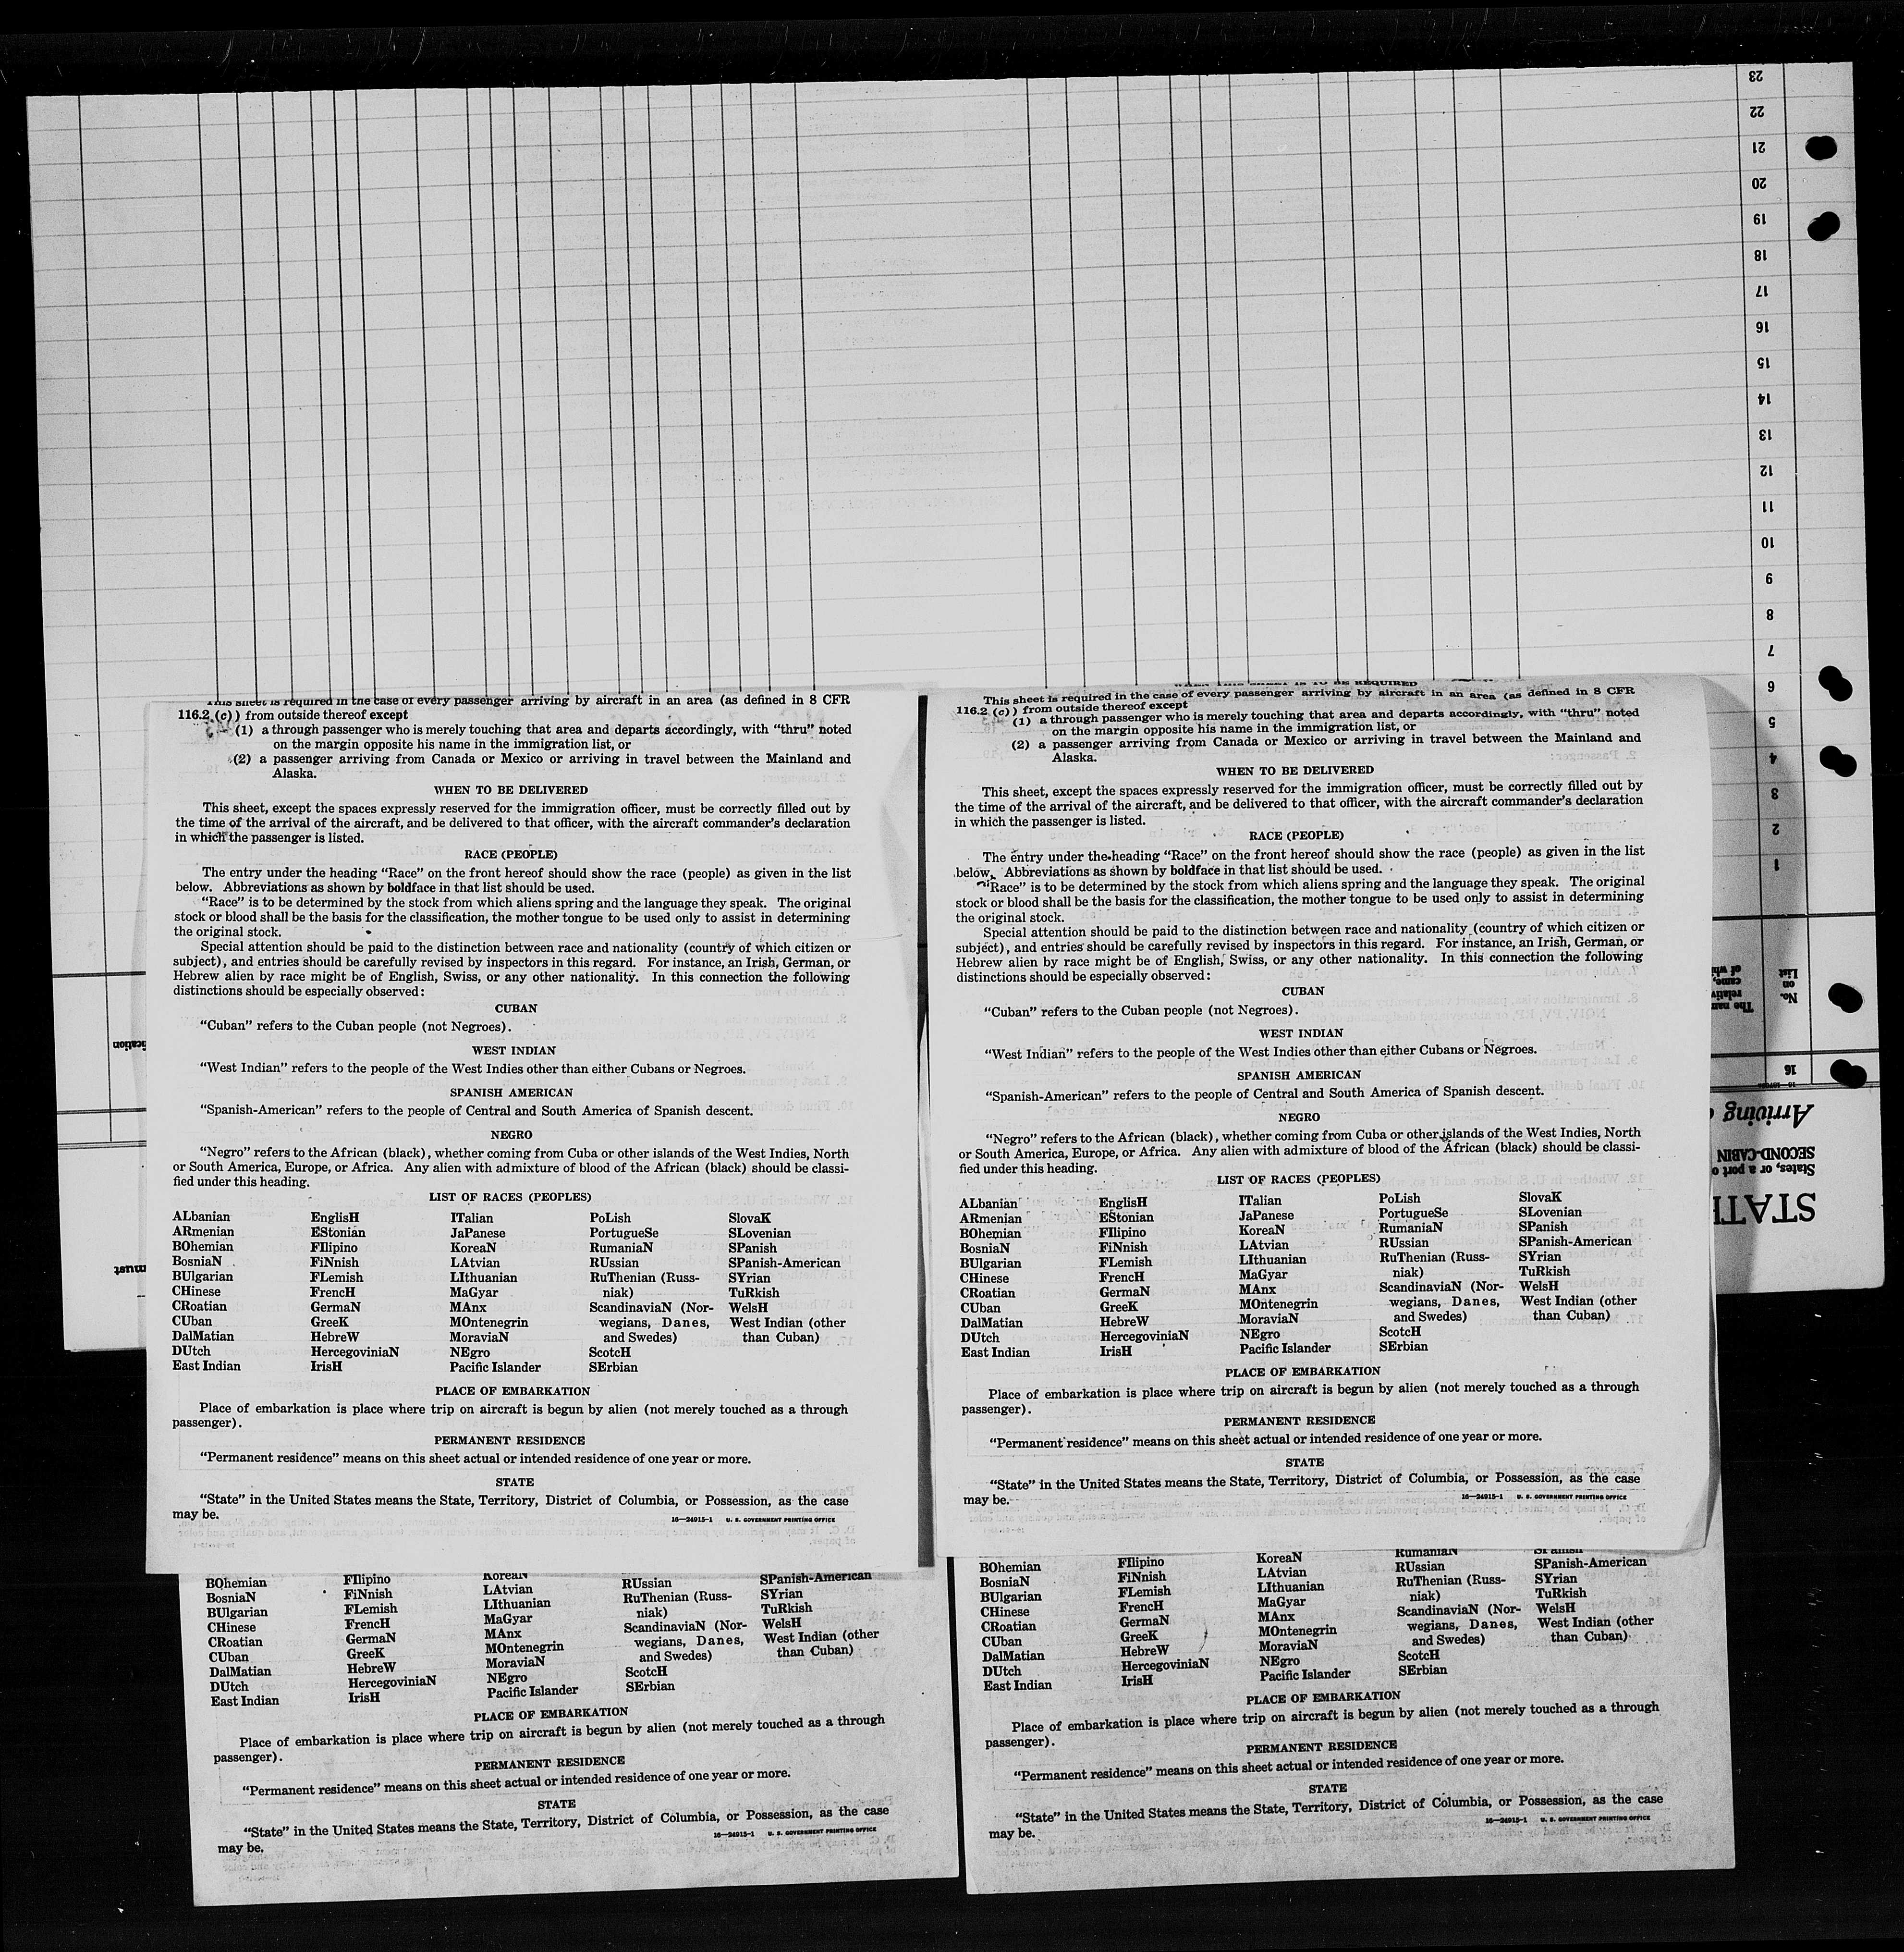 23
22
21
20
19
18
17
16
15
14
13
12
11
10
9
8
7
6
5
4
3
2
1
This sheet is required in the case of every passenger arriving by aircraft in an area (as defined in 8 CFR
116.2 (c)) from outside thereof except
(1) a through passenger who is merely touching that area and departs accordingly, with “thru” noted
on the margin opposite his name in the immigration list, or
(2) a passenger arriving from Canada or Mexico or arriving in travel between the Mainland and
Alaska.
WHEN TO BE DELIVERED
This sheet, except the spaces expressly reserved for the immigration officer, must be correctly filled out by
the time of the arrival of the aircraft, and be delivered to that officer, with the aircraft commander’s declaration
in which the passenger is listed.
RACE (PEOPLE)
The entry under the heading “Race” on the front hereof should show the race (people) as given in the list
below. Abbreviations as shown by boldface in that list should be used.
“Race” is to be determined by the stock from which aliens spring and the language they speak. The original
stock or blood shall be the basis for the classification, the mother tongue to be used only to assist in determining
the original stock.
Special attention should be paid to the distinction between race and nationality (country of which citizen or
subject), and entries should be carefully revised by inspectors in this regard. For instance, an Irish, German, or
Hebrew alien by race might be of English, Swiss, or any other nationality. In this connection the following
distinctions should be especially observed:
CUBAN
“Cuban” refers to the Cuban people (not Negroes).
WEST INDIAN
“West Indian” refers to the people of the West Indies other than either Cubans or Negroes.
SPANISH AMERICAN
“Spanish-American” refers to the people of Central and South America of Spanish descent.
NEGRO
“Negro” refers to the African (black), whether coming from Cuba or other islands of the West Indies, North
or South America, Europe, or Africa. Any alien with admixture of blood of the African (black) should be classi-
fied under this heading.
LIST OF RACES (PEOPLES)
ALbanian
ARmenian
BOhemian
BosniaN
BUlgarian
CHinese
CRoatian
CUban
DalMatian
DUtch
East Indian
EnglisH
EStonian
FIlipino
FiNnish
FLemish
FrencH
GermaN
GreeK
HebreW
HercegoviniaN
IrisH
ITalian
JaPanese
KoreaN
LAtvian
LIthuanian
MaGyar
MAnx
MOntenegrin
MoraviaN
NEgro
Pacific Islander
PoLish
PortugueSe
RumaniaN
RUssian
RuThenian (Russ-
niak)
ScandinaviaN (Nor-
wegians, Danes,
and Swedes)
ScotcH
SErbian
SlovaK
SLovenian
SPanish
SPanish-American
SYrian
TuRkish
WelsH
West Indian (other
than Cuban)
PLACE OF EMBARKATION
Place of embarkation is place where trip on aircraft is begun by alien (not merely touched as a through
passenger).
PERMANENT RESIDENCE
“Permanent residence” means on this sheet actual or intended residence of one year or more.
STATE
“State” in the United States means the State, Territory, District of Columbia, or Possession, as the case
may be.
16—24915-1 U. S. GOVERNMENT PRINTING OFFICE
WHEN THIS SHEET IS TO BE REQUIRED
This sheet is required in the case of every passenger arriving by aircraft in an area (as defined in 8 CFR
116.2 (c)) from outside thereof except
(1) a through passenger who is merely touching that area and departs accordingly, with “thru” noted
on the margin opposite his name in the immigration list, or
(2) a passenger arriving from Canada or Mexico or arriving in travel between the Mainland and
Alaska.
WHEN TO BE DELIVERED
This sheet, except the spaces expressly reserved for the immigration officer, must be correctly filled out by
the time of the arrival of the aircraft, and be delivered to that officer, with the aircraft commander’s declaration
in which the passenger is listed.
RACE (PEOPLE)
The entry under the heading “Race” on the front hereof should show the race (people) as given in the list
below. Abbreviations as shown by boldface in that list should be used.
“Race” is to be determined by the stock from which aliens spring and the language they speak. The original
stock or blood shall be the basis for the classification, the mother tongue to be used only to assist in determining
the original stock.
Special attention should be paid to the distinction between race and nationality (country of which citizen or
subject), and entries should be carefully revised by inspectors in this regard. For instance, an Irish, German, or
Hebrew alien by race might be of English, Swiss, or any other nationality. In this connection the following
distinctions should be especially observed:
CUBAN
“Cuban” refers to the Cuban people (not Negroes).
WEST INDIAN
“West Indian” refers to the people of the West Indies other than either Cubans or Negroes.
SPANISH AMERICAN
“Spanish-American” refers to the people of Central and South America of Spanish descent.
NEGRO
“Negro” refers to the African (black), whether coming from Cuba or other islands of the West Indies, North
or South America, Europe, or Africa. Any alien with admixture of blood of the African (black) should be classi-
fied under this heading.
LIST OF RACES (PEOPLES)
ALbanian
ARmenian
BOhemian
BosniaN
BUlgarian
CHinese
CRoatian
CUban
DalMatian
DUtch
East Indian
EnglisH
EStonian
FIlipino
FiNnish
FLemish
FrencH
GermaN
GreeK
HebreW
HercegoviniaN
IrisH
ITalian
JaPanese
KoreaN
LAtvian
LIthuanian
MaGyar
MAnx
MOntenegrin
MoraviaN
NEgro
Pacific Islander
PoLish
PortugueSe
RumaniaN
RUssian
RuThenian (Russ-
niak)
ScandinaviaN (Nor-
wegians, Danes,
and Swedes)
ScotcH
SErbian
SlovaK
SLovenian
SPanish
SPanish-American
SYrian
TuRkish
WelsH
West Indian (other
than Cuban)
PLACE OF EMBARKATION
Place of embarkation is place where trip on aircraft is begun by alien (not merely touched as a through
passenger).
PERMANENT RESIDENCE
“Permanent residence” means on this sheet actual or intended residence of one year or more.
STATE
“State” in the United States means the State, Territory, District of Columbia, or Possession, as the case
may be.
16—24915-1 U. S. GOVERNMENT PRINTING OFFICE
No.
on
List
16
Arriving
SECOND-CABIN
States, or a port o
STATE
must
BOhemian
BosniaN
BUlgarian
CHinese
CRoatian
CUban
DalMatian
DUtch
East Indian
FIlipino
FiNnish
FLemish
FrencH
GermaN
GreeK
HebreW
HercegoviniaN
IrisH
KoreaN
LAtvian
LIthuanian
MaGyar
MAnx
MOntenegrin
MoraviaN
NEgro
Pacific Islander
RUssian
RuThenian (Russ-
niak)
ScandinaviaN (Nor-
wegians, Danes,
and Swedes)
ScotcH
SErbian
SPanish-American
SYrian
TuRkish
WelsH
West Indian (other
than Cuban)
PLACE OF EMBARKATION
Place of embarkation is place where trip on aircraft is begun by alien (not merely touched as a through
passenger).
PERMANENT RESIDENCE
“Permanent residence” means on this sheet actual or intended residence of one year or more.
STATE
“State” in the United States means the State, Territory, District of Columbia, or Possession, as the case
may be.
16—24915-1 U. S. GOVERNMENT PRINTING OFFICE
BOhemian
BosniaN
BUlgarian
CHinese
CRoatian
CUban
DalMatian
DUtch
East Indian
FIlipino
FiNnish
FLemish
FrencH
GermaN
GreeK
HebreW
HercegoviniaN
IrisH
KoreaN
LAtvian
LIthuanian
MaGyar
MAnx
MOntenegrin
MoraviaN
NEgro
Pacific Islander
RumaniaN
RUssian
RuThenian (Russ-
niak)
ScandinaviaN (Nor-
wegians, Danes,
and Swedes)
ScotcH
SErbian
SPanish
SPanish-American
SYrian
TuRkish
WelsH
West Indian (other
than Cuban)
PLACE OF EMBARKATION
Place of embarkation is place where trip on aircraft is begun by alien (not merely touched as a through
passenger).
PERMANENT RESIDENCE
“Permanent residence” means on this sheet actual or intended residence of one year or more.
STATE
“State” in the United States means the State, Territory, District of Columbia, or Possession, as the case
may be.
16—24915-1 U. S. GOVERNMENT PRINTING OFFICE